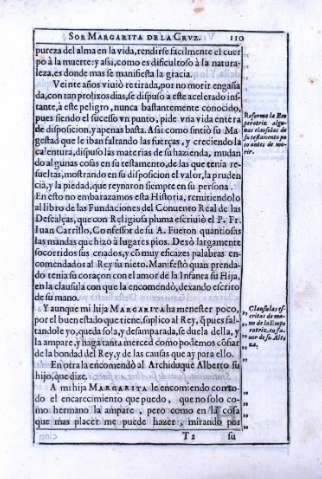 SOR MARGARITA DE LA CRVZ. 110
pureza del alma en la vida, rendirse facilmente el cuer
pò à la muerte: y assi, como es dificultoso à la natura-
leza, es donde mas se manifiesta la gracia.
Veinte años viuiò retirada, por no morir engaña
da, con tan prolixos dias, se dispuso a este acelerado ins
tante, à este peligro, nunca bastantemente conocido,
pues siendo el sucesso vn punto, pide vna vida entera
de disposicion, y apenas basta. Assi como sintiò su Ma
gestad que le iban faltando las fuerças, y creciendo la
calentura, dispuso las materias de su hazienda, mudan
do algunas cosas en su testamento, de las que tenia re-
sueltas, mostrando en su disposicion el valor, la pruden
cia, y la piedad, que reynaron siempre en su persona.
En esto no embarazamos esta Historia, remitiendolo
al libro de las Fundaciones del Conuento Real de las
Descalças, que con Religiosa pluma escriuiò el P. Fr.
Iuan Carrillo, Confessor de su A. Fueron quantiosas
las mandas que hizo à lugares pios. Dexò largamente
socorridos sus criados, y con muy eficazes palabras en-
comendados al Rey su nieto. Manifestò quan prenda-
do tenia su coraçon con el amor de la Infanta su Hija,
en la clausula con que la encomendò, dexando escrito
de su mano.
Y aunque mi hija MARGARITA ha menester poco,
por el buen estado que tiene, suplico al Rey, q̃ pues fal-
tandole yo, queda sola, y desamparada, se duela della, y
la ampare, y haga tanta merced como podemos cõfiar
de la bondad del Rey, y de las causas que ay para ello.
En otra la encomendò al Archiduque Alberto su
hijo, que dize.
A mi hija MARGARITA le encomiendo con to-
do el encarecimiento que puedo, que no solo co-
mo hermano la ampare, pero como en la cosa
que mas placer me puede hazer, mirando por
T 2 su
Reforma la Em
peratriz algu-
nas clausulas de
su testamento po
co antes de mo-
rir.
Clausulas es-
critas de ma-
no de la Empe-
ratriz, en fa-
uor de su Alte
za.